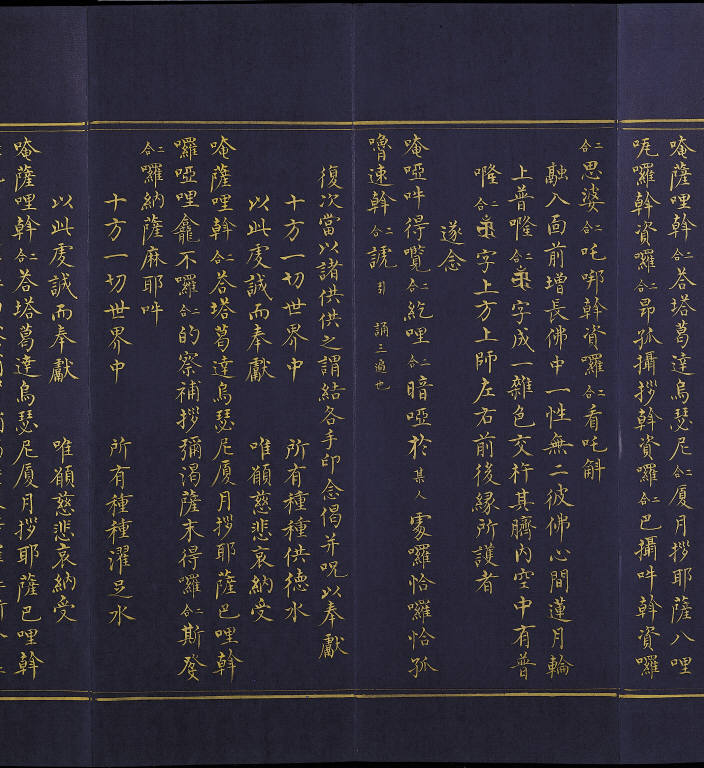 唵薩哩斡二合荅塔葛達烏瑟尼二合厦月拶耶薩八哩
唲囉斡資囉二合昂孤攝拶斡資囉二合巴攝吽斡資囉
二合思婆二合吒啷斡資囉二合看吒斛
融入面前增長佛中一性無二彼佛心間蓮月輪
上普𠺁二合字成一雜色交杵其臍內空中有普
𠺁二合字上方上師左右前後緣所護者
遂念
唵啞吽得覽二合紇哩二合暗啞於某人霎囉恰囉恰孤
嚕速斡二合謕引 誦三遍也
復次當以諸供供之謂結各手印念偈并呪以奉獻
十方一切世界中 所有種種供德水
以此虔誠而奉獻 唯願慈悲哀納受
唵薩哩斡二合荅塔葛達烏瑟尼厦月拶耶薩巴哩斡
囉啞哩龕不囉二合的察補拶彌渴薩末得囉二合斯發
二合囉納薩麻耶吽
十方一切世界中 所有種種濯足水
以此虔誠而奉獻 唯願慈悲哀納受
唵薩哩斡二合荅塔葛達烏瑟尼厦月拶耶薩巴哩斡